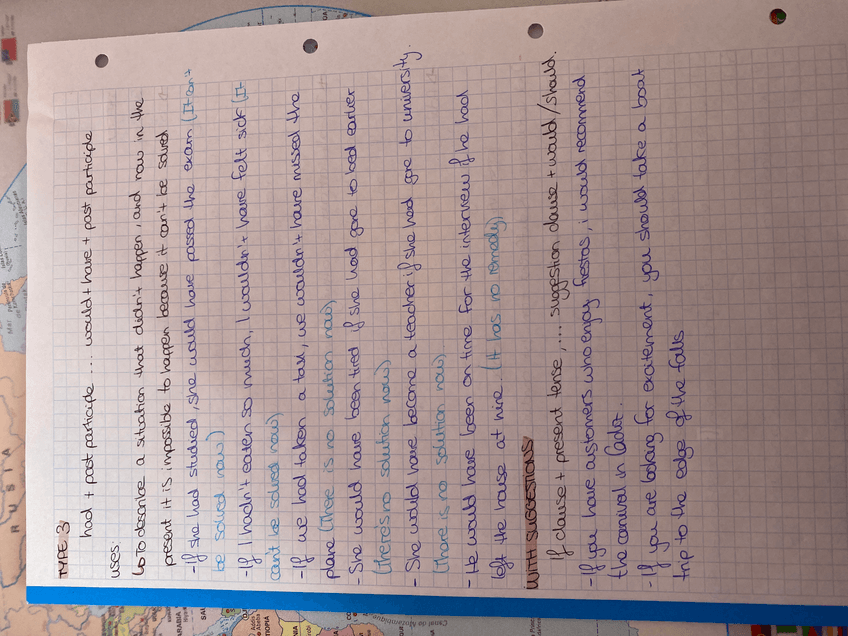 TYPE 3
had + past participle ... would + have + past participle
uses:
↳ To describe a situation that didn't happen, and now in the
present it is impossible to happen because it can't be solved
- If she had studied, she would have passed the exam (It can't
be solved now)
- If I hadn't eaten so much, I wouldn't have felt sick (It
can't be solved now)
- If we had taken a taxi, we wouldn't have missed the
plane (There is no solution now)
- She would have been tired if she had gone to bed earlier
(There's no solution now)
- She would have become a teacher if she had gone to university.
(There is no solution now).
- He would have been on time for the interview if he had
left the house at nine. (It has no remedy)
WITH SUGGESTIONS
If clause + present tense, .... suggestion clause + would/should.
- If you have customers who enjoy fiestas, i would recommend
the carnival in Cadiz.
- If you are looking for excitement, you should take a boat
trip to the edge of the falls
RUSIA
Canal de Mozambique